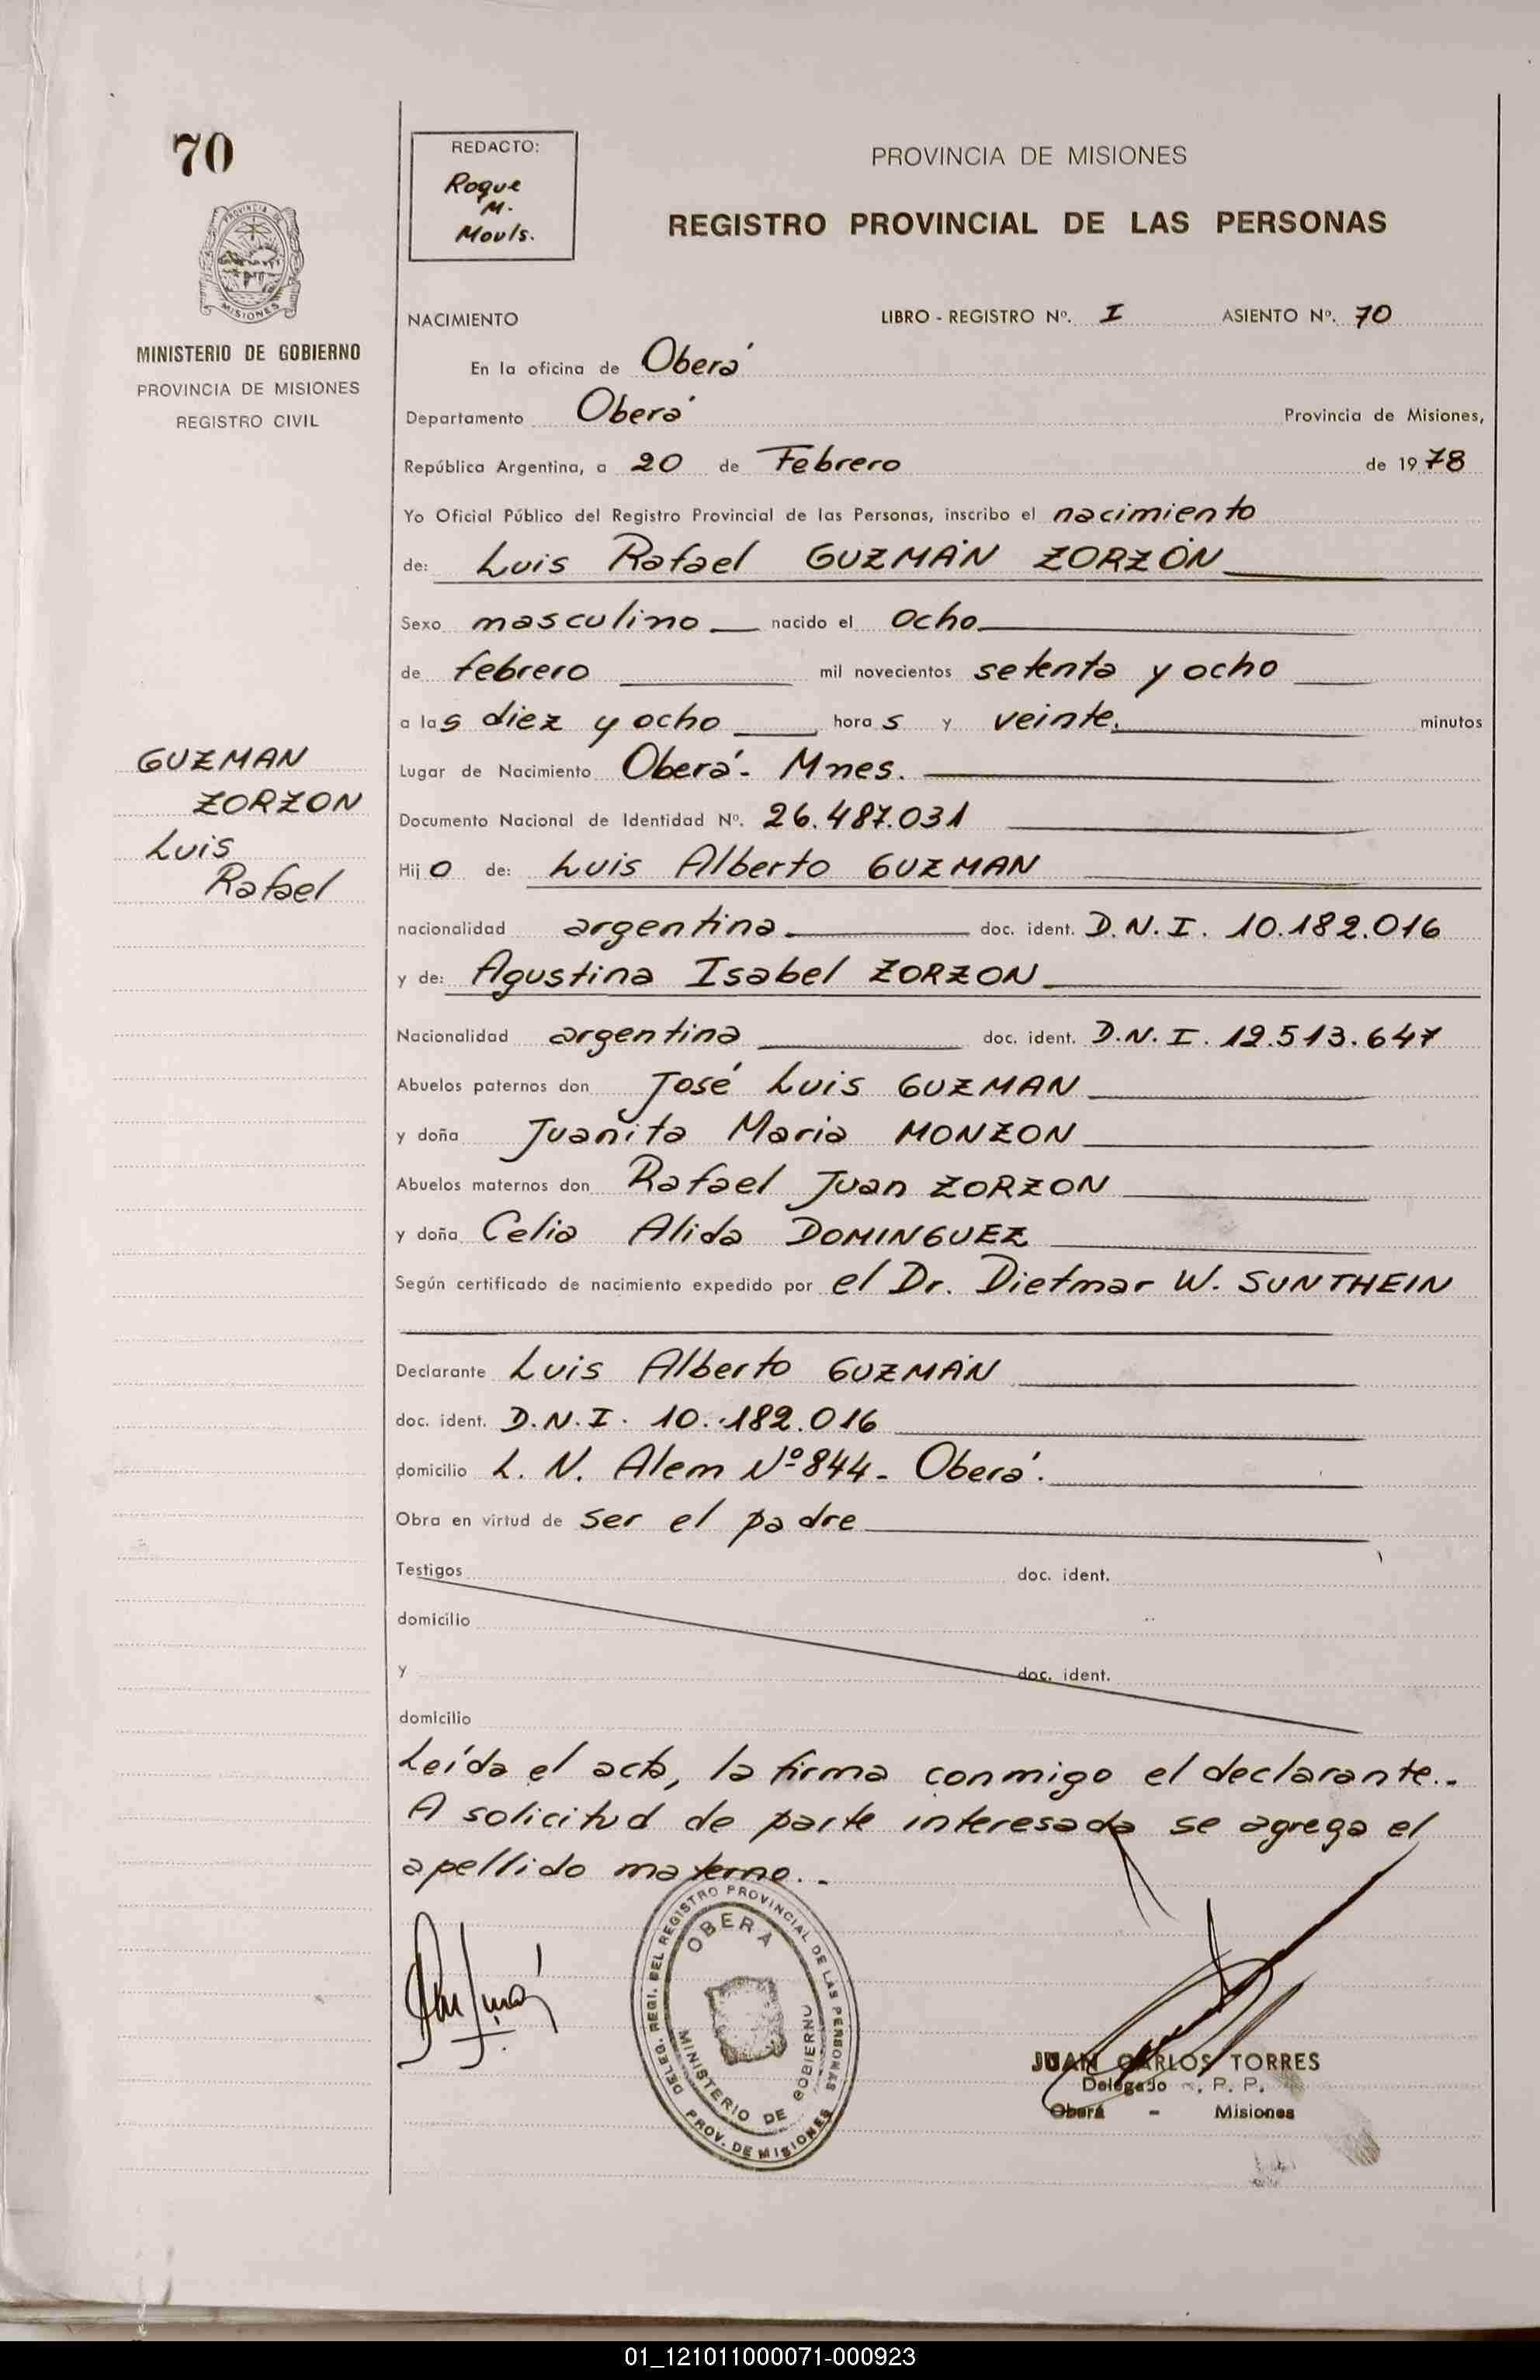 70
PROVINCIA DE
MISIONES
MINISTERIO DE GOBIERNO
PROVINCIA DE MISIONES
REGISTRO CIVIL
GUZMAN
ZORZON
Luis
Rafael
REDACTO:
Roque
M.
Mouls.
PROVINCIA DE MISIONES
REGISTRO PROVINCIAL DE LAS PERSONAS
NACIMIENTO LIBRO - REGISTRO Nº. I ASIENTO Nº. 70
En la oficina de Oberá
Departamento Oberá Provincia de Misiones,
República Argentina, a 20 de Febrero de 1978
Yo Oficial Público del Registro Provincial de las Personas, inscribo el nacimiento
de: Luis Rafael GUZMÁN ZORZÓN
Sexo masculino nacido el ocho
de febrero mil novecientos setenta y ocho
a las diez y ocho horas y veinte. minutos
Lugar de Nacimiento Oberá - Mnes.
Documento Nacional de Identidad Nº. 26.487.031
Hijo de: Luis Alberto GUZMAN
nacionalidad argentina. doc. ident. D.N.I. 10.182.016
y de: Agustina Isabel ZORZON
Nacionalidad argentina doc. ident. D.N.I. 12.513.647
Abuelos paternos don José Luis GUZMAN
y doña Juanita Maria MONZON
Abuelos maternos don Rafael Juan ZORZON
y doña Celia Alida DOMINGUEZ
Según certificado de nacimiento expedido por el Dr. Dietmar W. SUNTHEIN
Declarante Luis Alberto GUZMÁN
doc. ident. D.N.I. 10.182.016
domicilio L. N. Alem Nº 844 - Oberá.
Obra en virtud de ser el padre
Testigos doc. ident.
domicilio
y doc. ident.
domicilio
Leída el acta, la firma conmigo el declarante.-
A solicitud de parte interesada se agrega el
apellido materno.-
DELEG. REGI. DEL REGISTRO PROVINCIAL DE LAS PERSONAS
OBERA
MINISTERIO DE GOBIERNO
PROV. DE MISIONES
JUAN CARLOS TORRES
Delegado R. P. P.
Oberá - Misiones
01_121011000071-000923